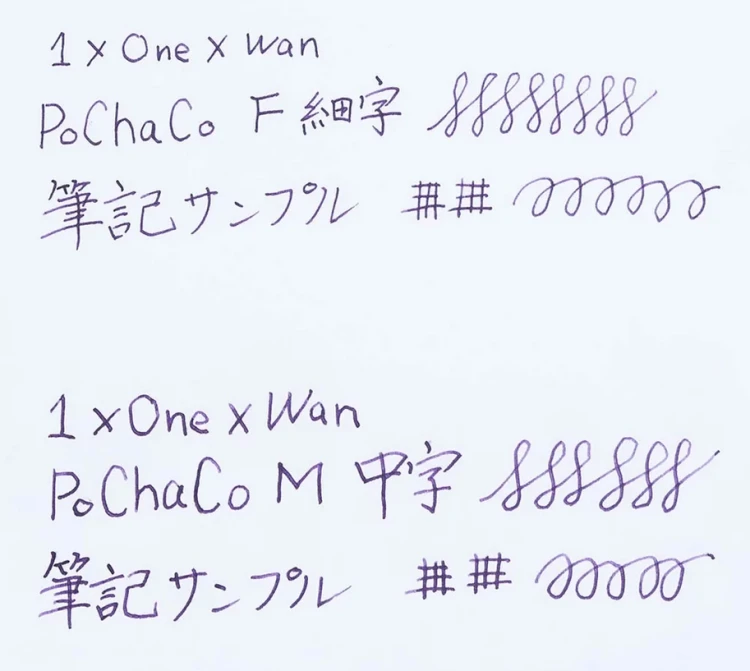 1 x One x Wan
PoChaCo F 細字
筆記サンプル
1 x One x Wan
PoChaCo M 中字
筆記サンプル